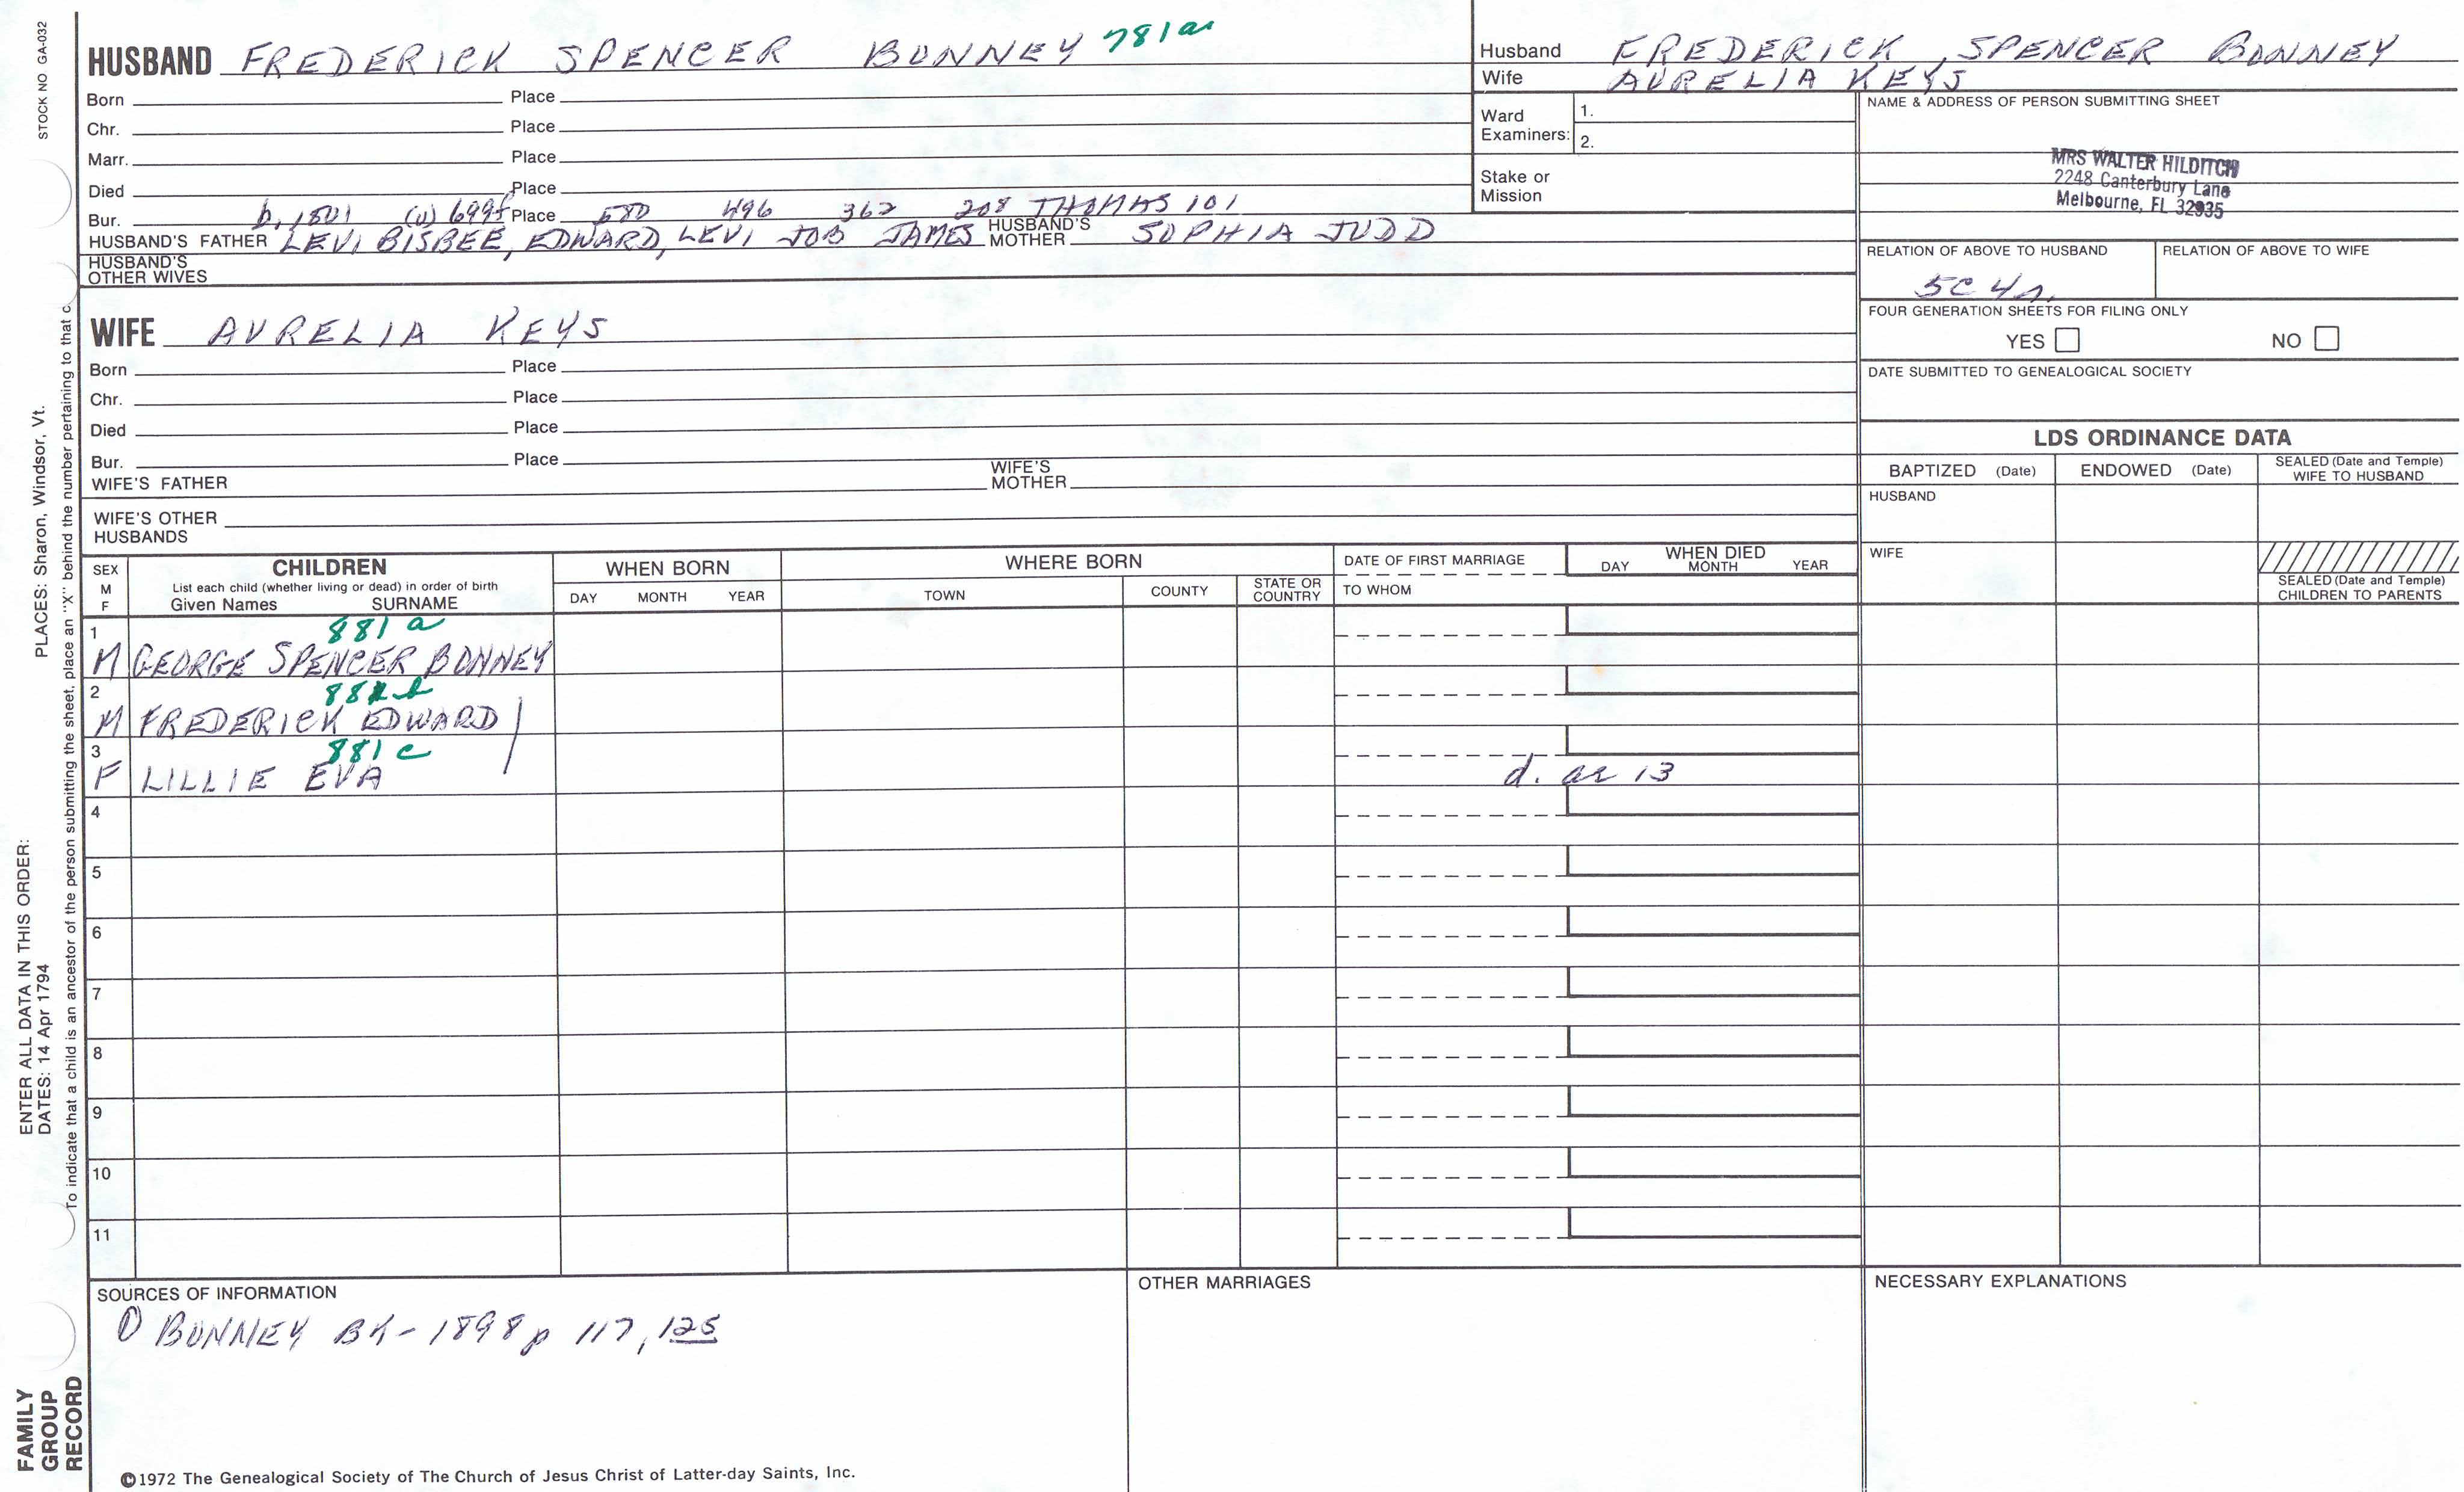 STOCK NO GA-032
HUSBAND FREDERICK SPENCER BONNEY 781a
Born Place
Chr. Place
Marr. Place
Died Place
Bur. b. 1801 (u) 699f Place 580 496 362 208 THOMAS 101
HUSBAND'S FATHER LEVI BISBEE, EDWARD, LEVI JOB JAMES HUSBAND'S MOTHER SOPHIA JUDD
HUSBAND'S OTHER WIVES
WIFE AURELIA KEYS
Born Place
Chr. Place
Died Place
Bur. Place
WIFE'S FATHER WIFE'S MOTHER
WIFE'S OTHER HUSBANDS
Husband FREDERICK SPENCER BONNEY
Wife AURELIA KEYS
Ward Examiners: 1.
2.
Stake or Mission
NAME & ADDRESS OF PERSON SUBMITTING SHEET
MRS WALTER HILDITCH
2248 Canterbury Lane
Melbourne, FL 32935
RELATION OF ABOVE TO HUSBAND RELATION OF ABOVE TO WIFE
5C 4r.
FOUR GENERATION SHEETS FOR FILING ONLY
YES NO
DATE SUBMITTED TO GENEALOGICAL SOCIETY
LDS ORDINANCE DATA
BAPTIZED (Date) ENDOWED (Date) SEALED (Date and Temple) WIFE TO HUSBAND
HUSBAND
WIFE
SEALED (Date and Temple) CHILDREN TO PARENTS
SEX M F
CHILDREN
List each child (whether living or dead) in order of birth
Given Names SURNAME
WHEN BORN
DAY MONTH YEAR
WHERE BORN
TOWN COUNTY STATE OR COUNTRY
DATE OF FIRST MARRIAGE
TO WHOM
WHEN DIED
DAY MONTH YEAR
1 881a
M GEORGE SPENCER BONNEY
2 881b
M FREDERICK EDWARD
3 881c
F LILLIE EVA d. ae 13
4
5
6
7
8
9
10
11
SOURCES OF INFORMATION
① BONNEY BK-1898 p 117, 125
OTHER MARRIAGES
NECESSARY EXPLANATIONS
©1972 The Genealogical Society of The Church of Jesus Christ of Latter-day Saints, Inc.
FAMILY GROUP RECORD
ENTER ALL DATA IN THIS ORDER:
DATES: 14 Apr 1794
PLACES: Sharon, Windsor, Vt.
To indicate that a child is an ancestor of the person submitting the sheet, place an "X" behind the number pertaining to that c